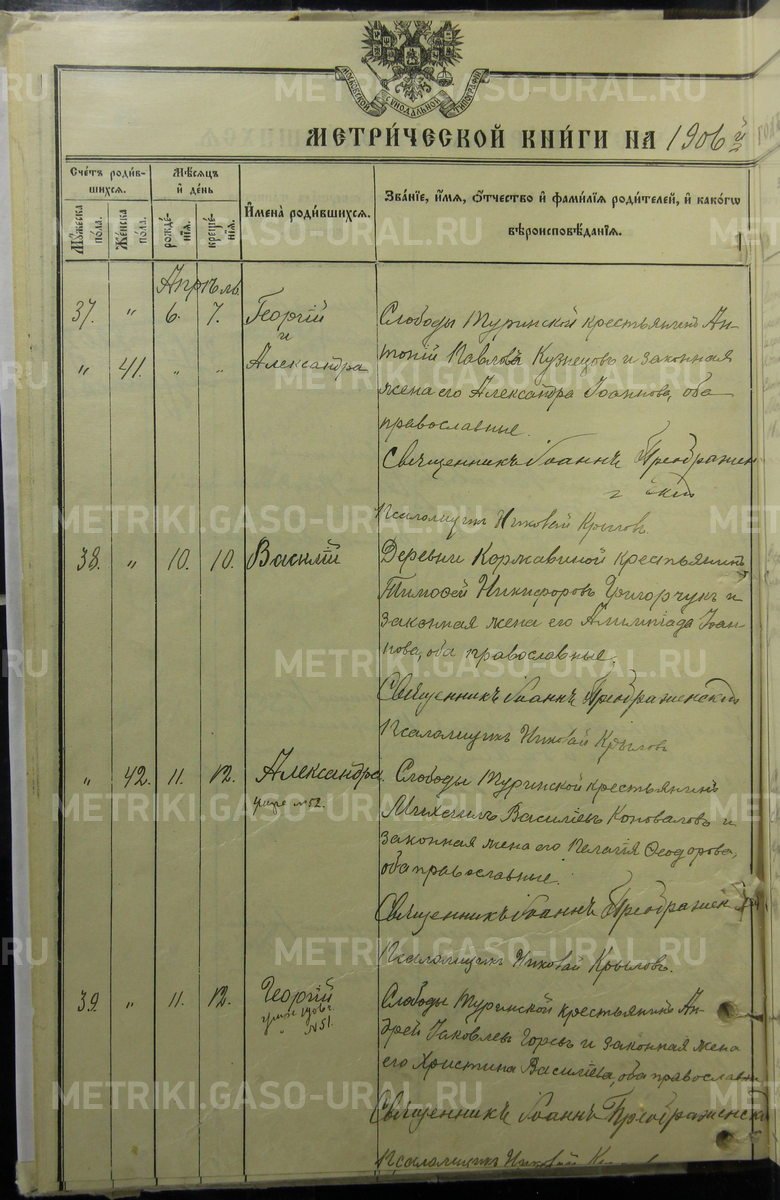 МОСКОВСКОЙ СУНОДАЛЬНОЙ ТИПОГРАФІИ
МЕТРИ́ЧЕСКОЙ КНИ́ГИ НА 1906 й
Счетъ роди́в-
шихся.
Мѣсяцъ
и҆ де́нь
И҆мена̀ роди́вшихся.
Зва́ніе, и҆мя, ѻ҆́тчество и҆ фами́лія роди́телей, и҆ како́гѡ
вѣроисповѣ́данія.
Мꙋжеска по́ла.
Же́нска по́ла.
рожде́нія.
креще́нія.
Апрѣль
37. " 6. 7. Георгій
и
" 41. " " Александра
Слободы Туринской крестьянинъ Ан-
тоній Павловъ Кузнецовъ и законная
жена его Александра Іоаннова, оба
православные.
Священникъ Іоаннъ Преображен
скій
Псаломщикъ Николай Крыловъ.
38. " 10. 10. Василій
Деревни Коржавиной крестьянинъ
Тимофей Никифоровъ Григорчукъ и
законная жена его Алимпіада Іоан-
нова, оба православные.
Священникъ Іоаннъ Преображенскій
Псаломщикъ Николай Крыловъ
" 42. 11. 12. Александра
умре №52.
Слободы Туринской крестьянинъ
Михаилъ Василіевъ Коноваловъ и
законная жена его Пелагія Ѳеодорова,
оба православные.
Священникъ Іоаннъ Преображен
Псаломщикъ Николай Крыловъ.
39. " 11. 12. Георгій
умре 1906 г
" №51.
Слободы Туринской крестьянинъ Ан-
дрей Іаковлевъ Горевъ и законная жена
его Христина Василіева, оба православн
Священникъ Іоаннъ Преображенск
Псаломщикъ Николай
METRIKI.GASO-URAL.RU